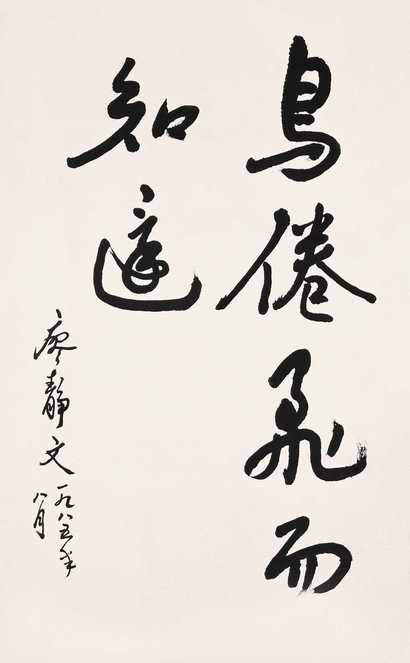 鳥倦飛而
知還
廖静文 一九八五年
八月